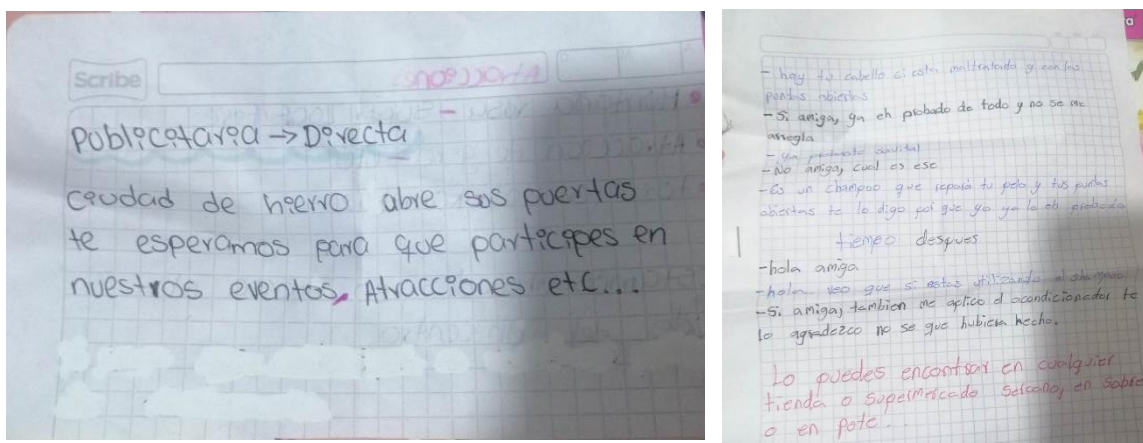 Scribe
Publicitaria → Directa
ciudad de hierro abre sus puertas
te esperamos para que participes en
nuestros eventos, Atracciones etc...
- hay tu cabello si esta maltratado y con las
puntas abiertas
- Si amiga, ya eh probado de todo y no se me
arregla
- Ya probaste
- No amiga, cual es ese
- Es un champoo que repara tu pelo y tus puntas
abiertas te lo digo por que yo ya lo eh probado
tiempo despues
- hola amiga
- hola veo que si estas utilizando el shampoo
- Si amiga, tambien me aplico el acondicionador te
lo agradezco no se que hubiera hecho.
Lo puedes encontrar en cualquier
tienda o supermercado sercano, en sobre
o en pote...